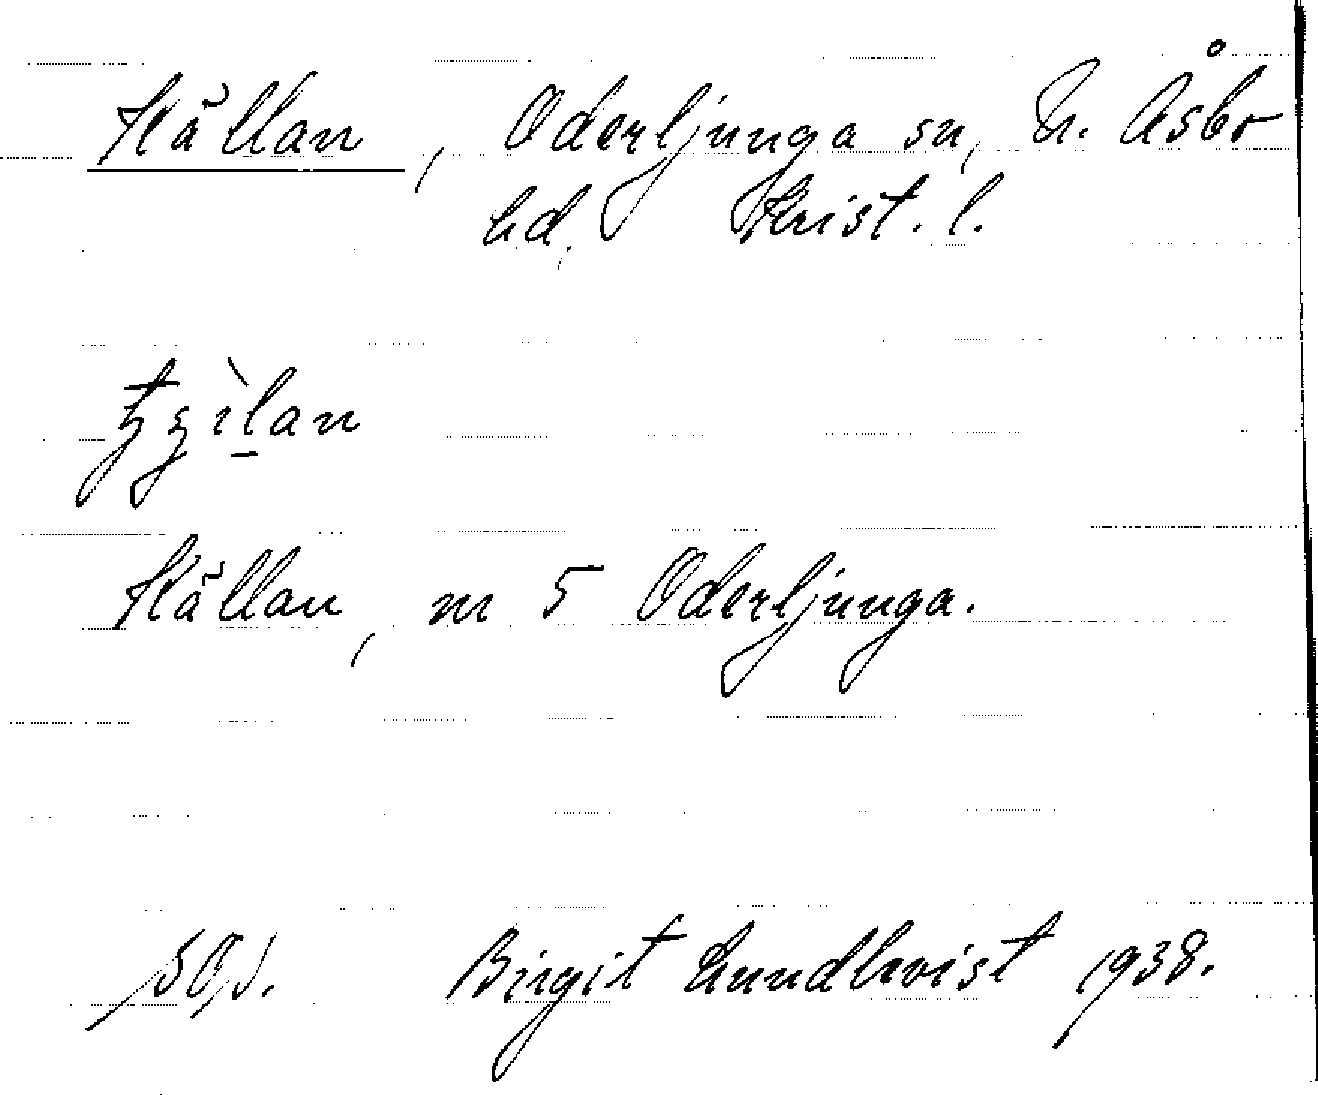 Källan, Oderljunga sn, N. Åsbo
hd, Krist. l.
Källan, nr 5 Oderljunga.
Birgit Lundkvist 1938.